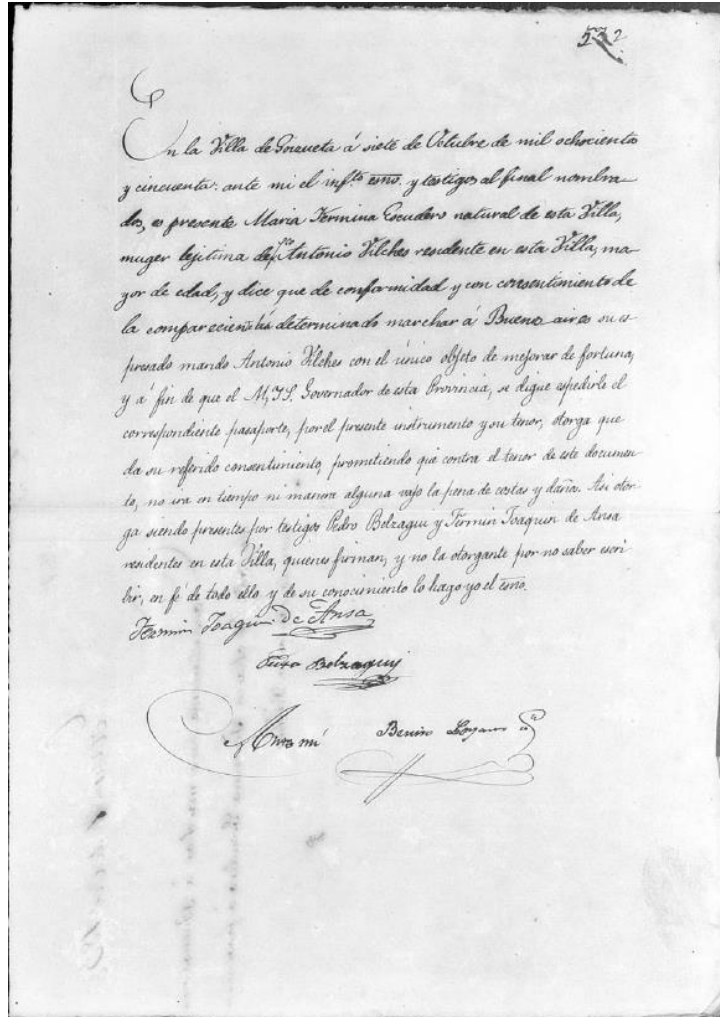 En la Villa de Goizueta á siete de Octubre de mil ochociento
y cincuenta: ante mi el infto. esno. y testigos al final nombra-
dos, es presente Maria Fermina Escudero natural de esta Villa,
muger lejitima de Antonio Vilches residente en esta Villa, ma-
yor de edad, y dice que de conformidad y con consentimiento de
la compareciente há determinado marchar á Buenos aires su es-
presado marido Antonio Vilches con el único objeto de mejorar de fortuna,
y á fin de que el M,Y,S. Governador de esta Provincia, se digue espedirle el
correspondiente pasaporte, por el presente instrumento y su tenor, otorga que
da su referido consentimiento, prometiendo que contra el tenor de este documen-
to, no ira en tiempo ni manera alguna vajo la pena de costas y daños. Asi otor-
ga siendo presentes por testigos Pedro Belzagui y Fermin Joaquin de Ansa
residentes en esta Villa, quienes firman, y no la otorgante por no saber escri-
bir, en fé de todo ello y de su conocimiento lo hago yo el esno.
Fermin Joaquin De Ansa
Pedro Belzagui
Ante mí Benito Lozano